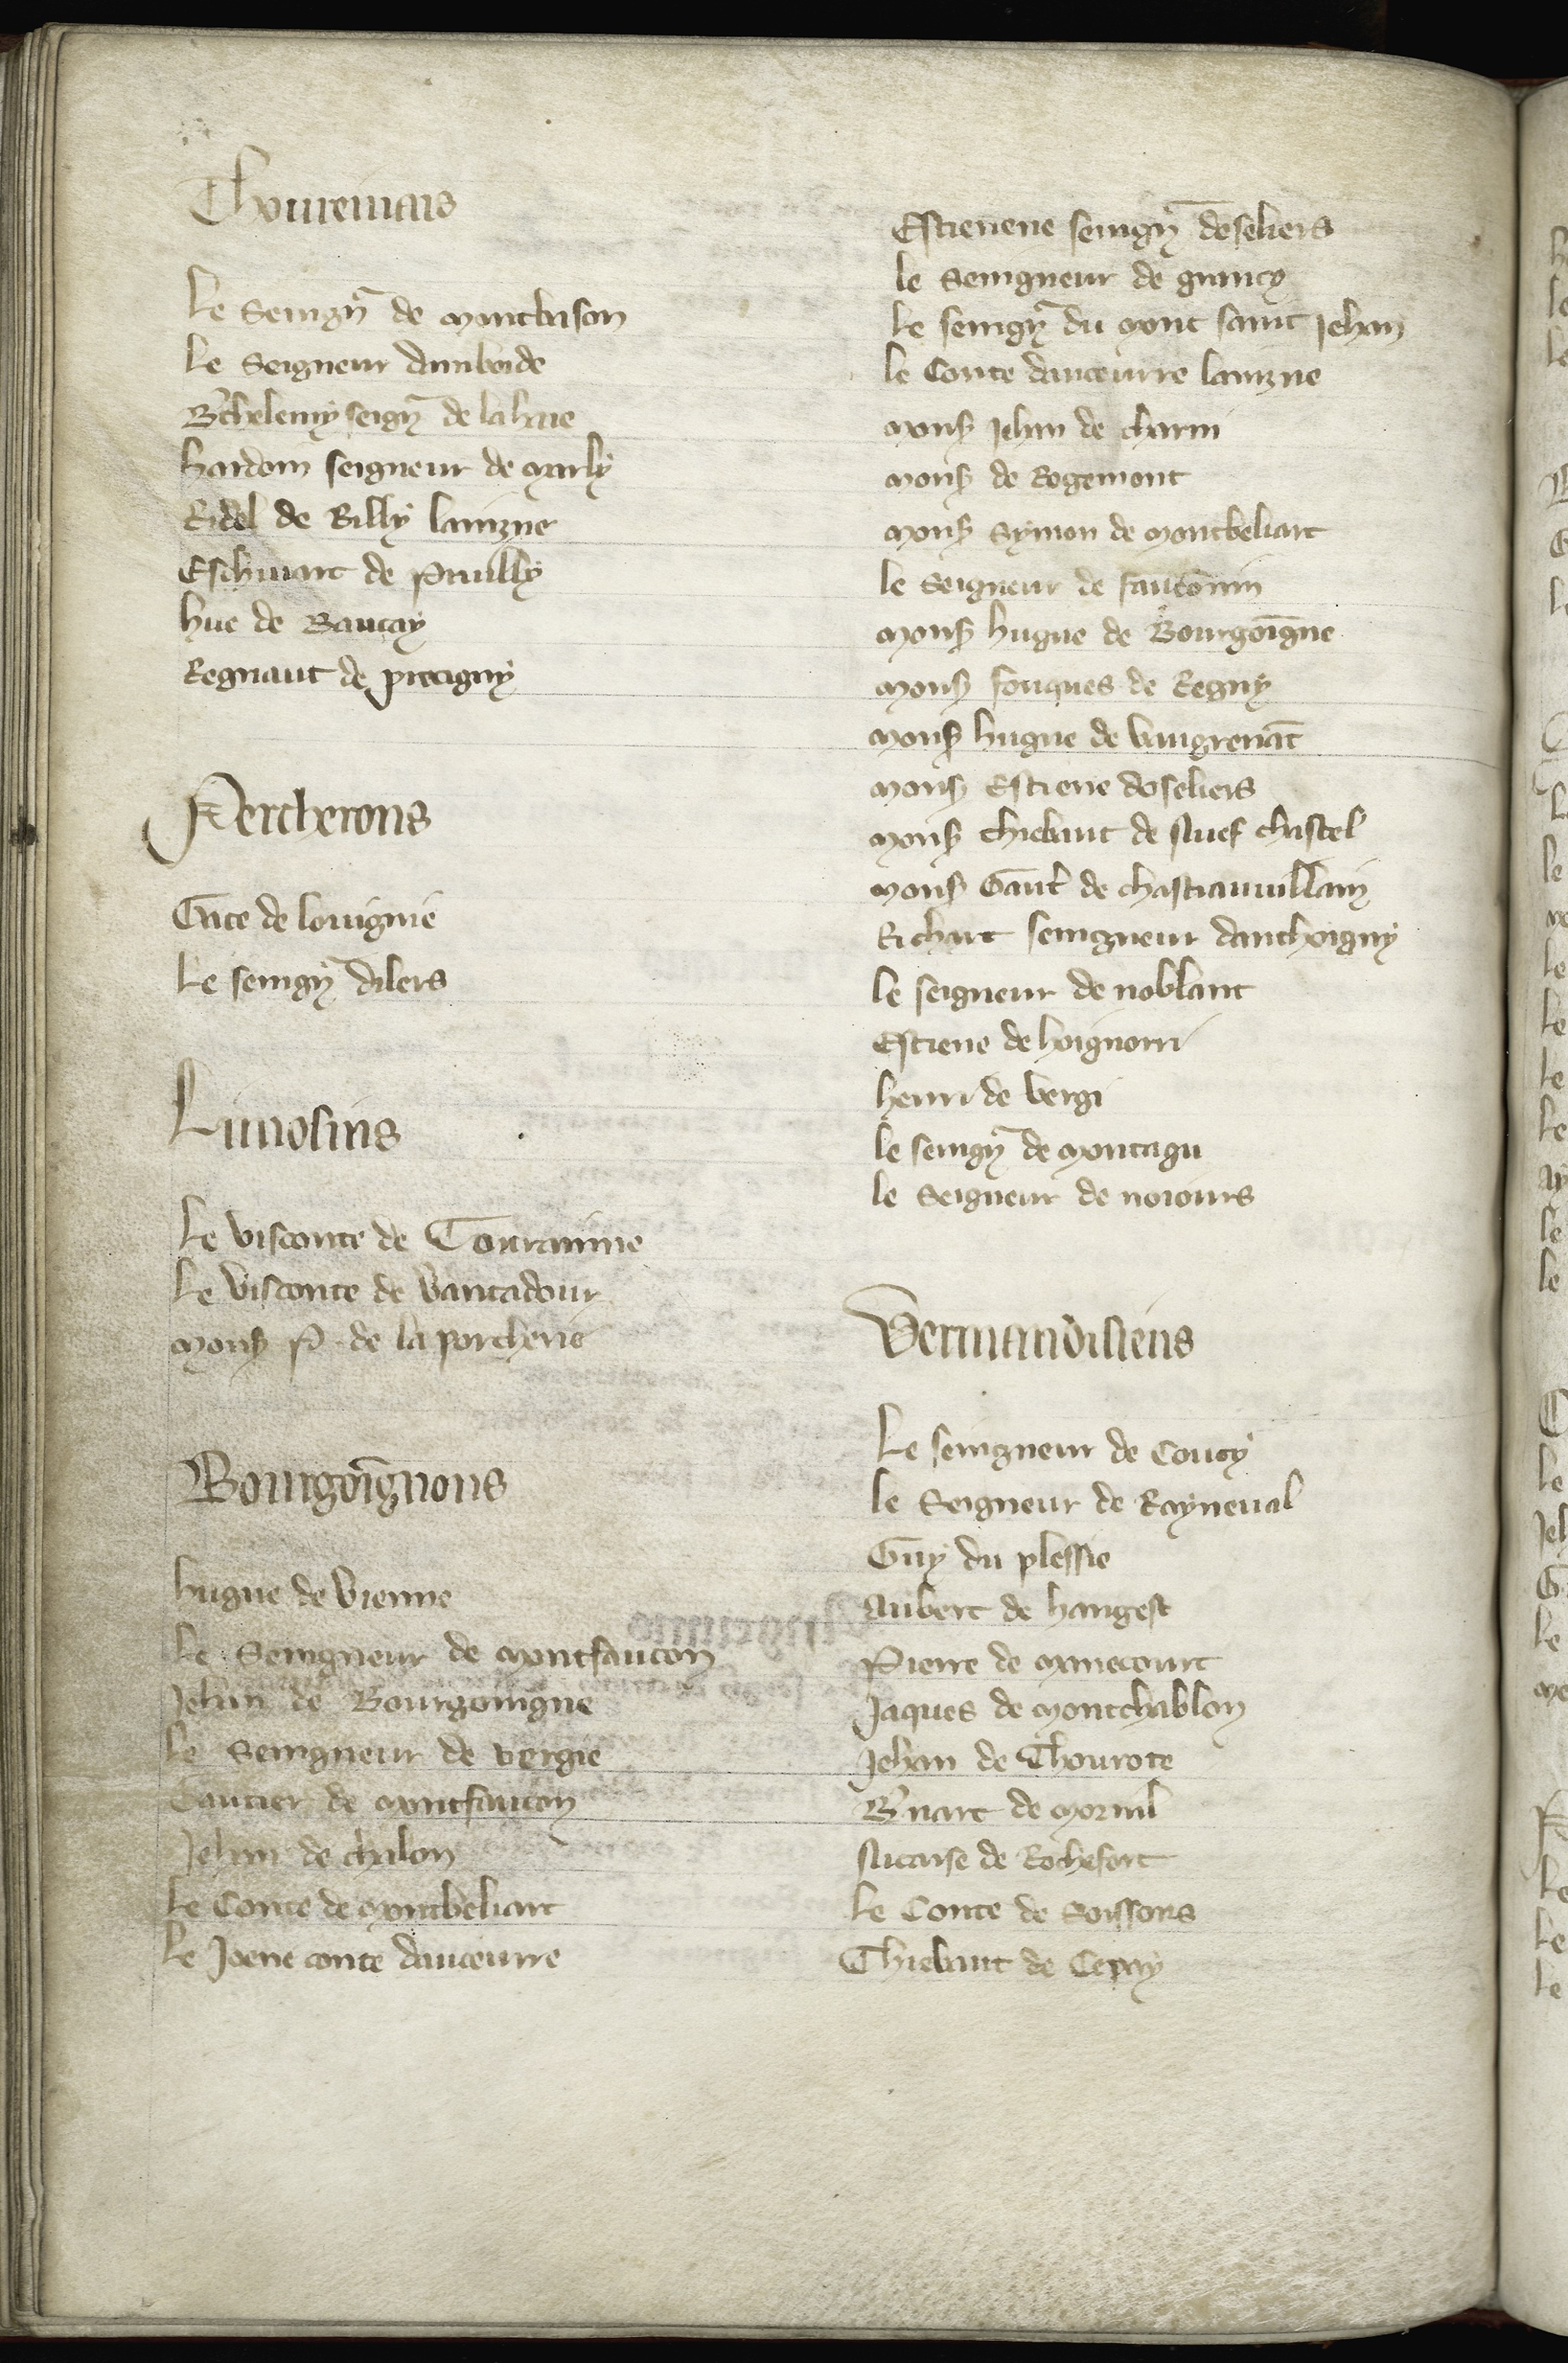 Thoureniaus
Le Seingn̄ de Montbason
Le Seigneur damboide
B'thelemy seign̄ de la haie
hardoin seigneur de Marly
Ridel de Billy lainzne
Eschivart de Prully
hue de Baucay
Regnaut de precigny
Percherons
Gace de louignie
Le seingn̄ dilers
Limosins
Le visconte de Tourainne
Le Visconte de Vantadour
Mons P de la porcherie
Bourgoignons
hugue de Vienne
Le Seingneur de Montfaucon
Jehan de Bourgoingne
Le Seingneur de vergie
Gautier de Montfaucon
Jehan de chalon
Le Conte de Montbeliart
Le Joene conte dauceurre
Estienene seingn̄ doseliers
le Seingneur de grancy
Le seingn̄ du Mont saint Jehan
le Conte dauceurre lainzne
Mons Jehan de charni
Mons de Rogemont
Mons Symon de Montbeliart
le Seigneur de
Mons hugue de Bourgoigne
Mons fouques de Regny
Mons hugue de Vaugrenāt
Mons Estiene doseliers
Mons thiebaut de Nuef chastel
Mons Gaut' de chastiauvillain
Richart seingneur danthoigny
le seigneur de noblant
Estiene de hoignori
henri de vergi
le seingn̄ de Montagu
le Seigneur de noiours
Vermandisiens
Le seingneur de Coucy
le Seigneur de Rayneval
Guy du plessie
Aubert de hangest
Pierre de
Jaques de Montchablon
Jehan de Thourote
B'nart de Moruil
Nicaise de Rochefort
Le Conte de Soissons
Thiebaut de Cepoy